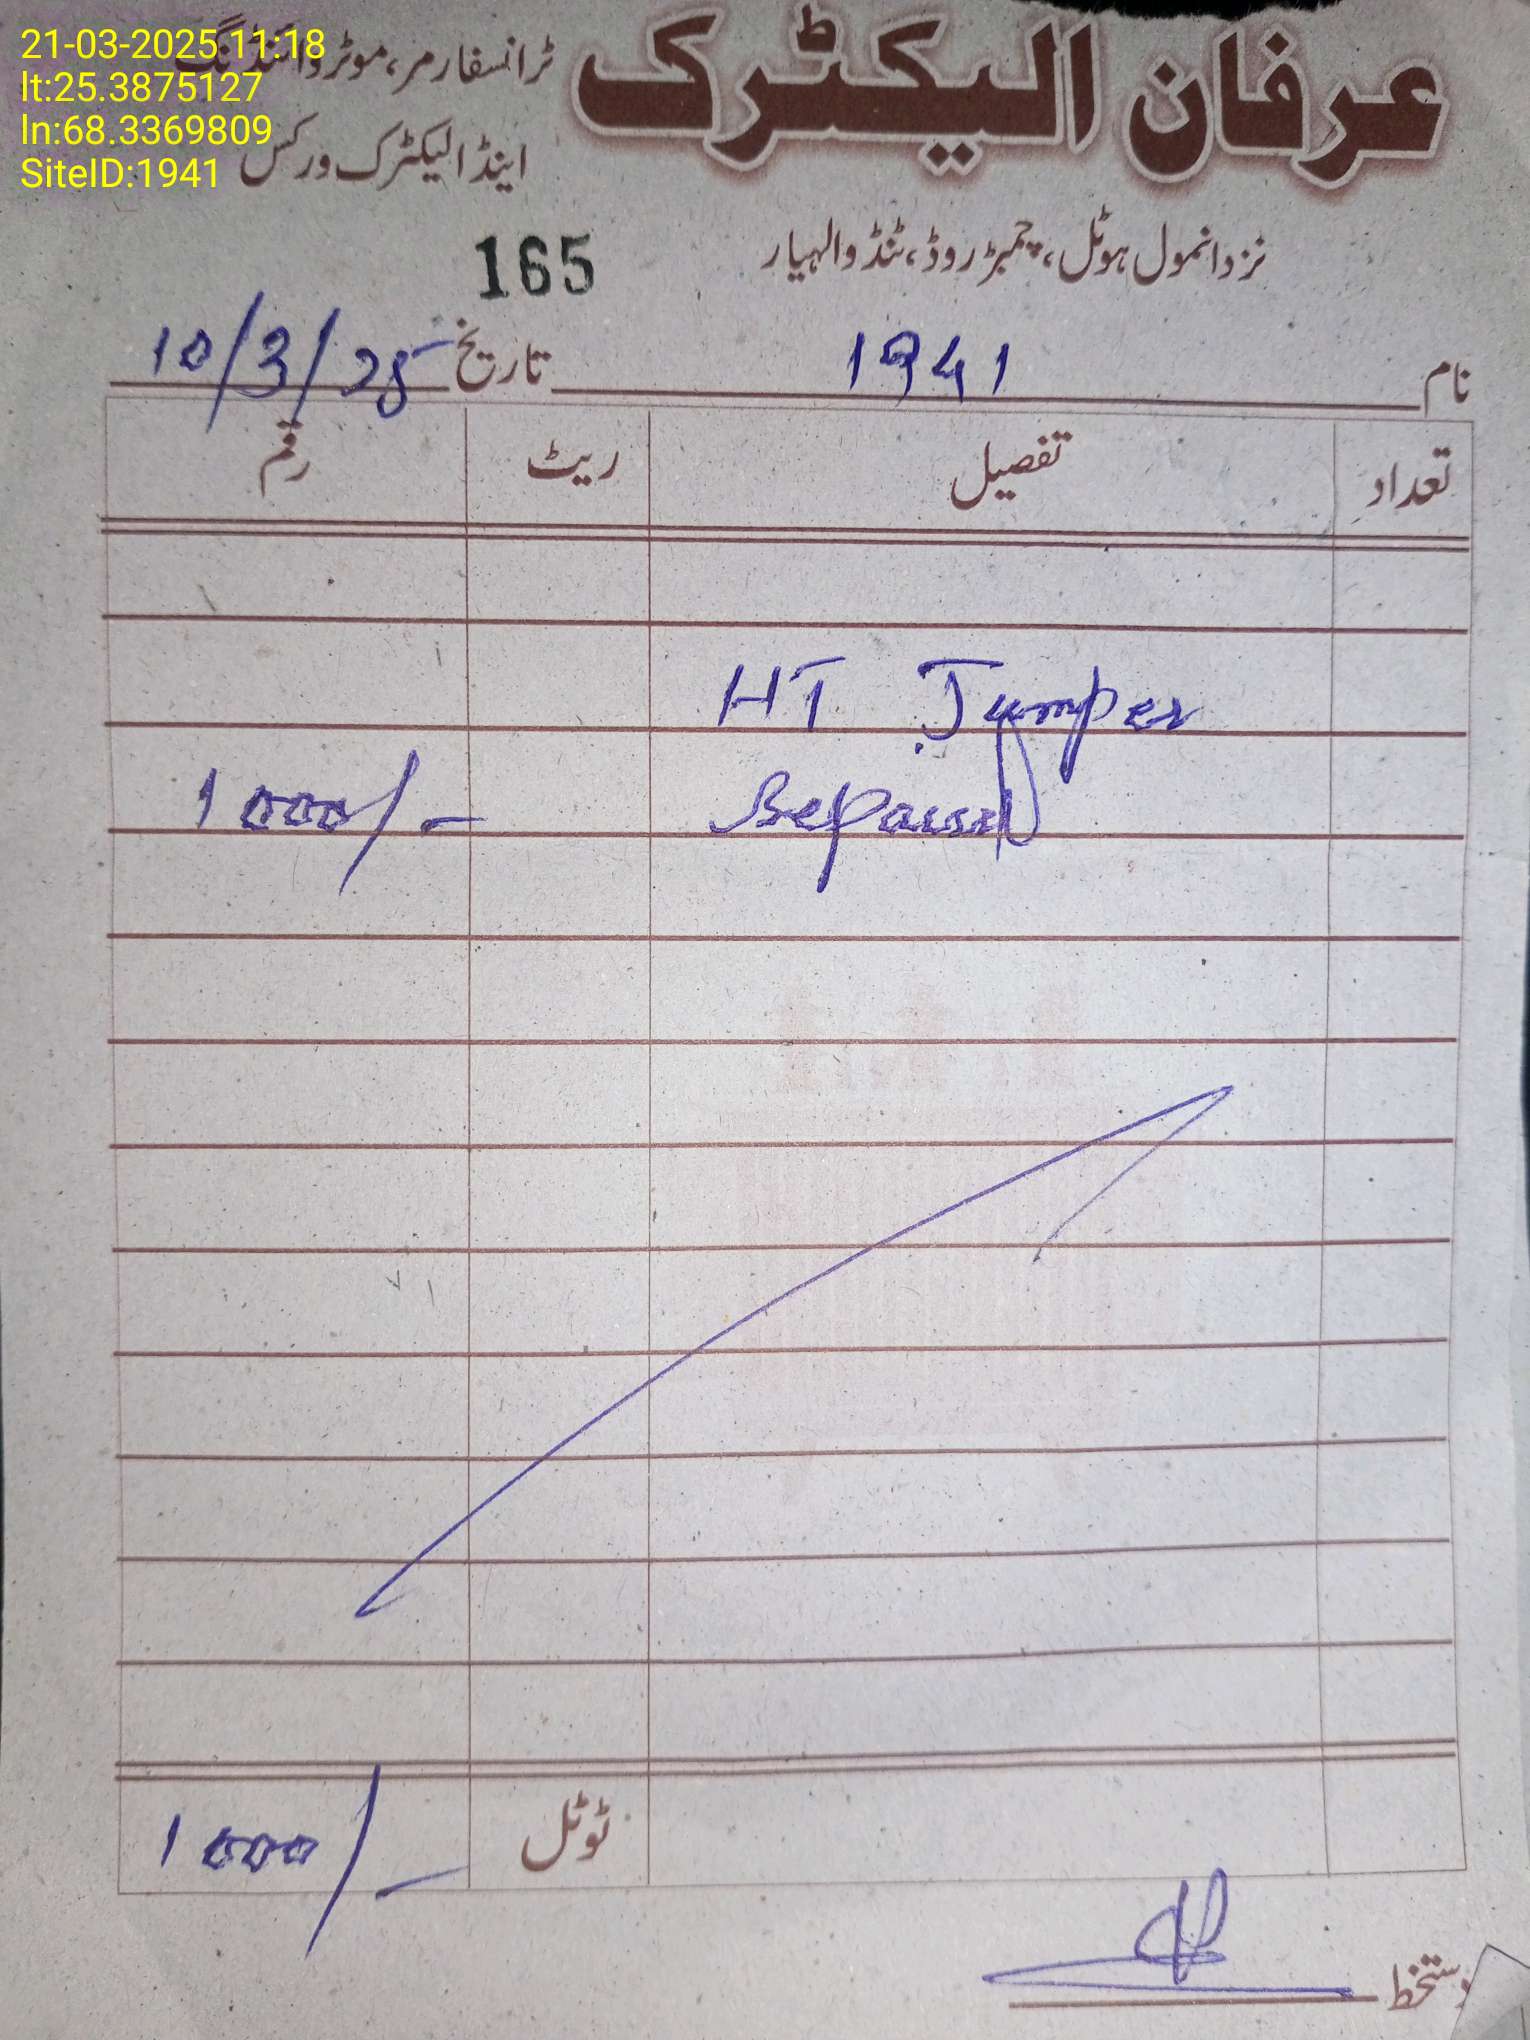 21-03-2025 11:18
lt:25.3875127
ln:68.3369809
SiteID:1941
عرفان الیکٹرک
ٹرانسفارمر، موٹر وائنڈنگ
اینڈ الیکٹرک ورکس
نزد انمول ہوٹل، چمبڑ روڈ، ٹنڈوالہیار
165
نام 1941 تاریخ 10/3/25
تعداد تفصیل ریٹ رقم
HT Jumper
Repaired 1000/-
ٹوٹل 1000/-
دستخط